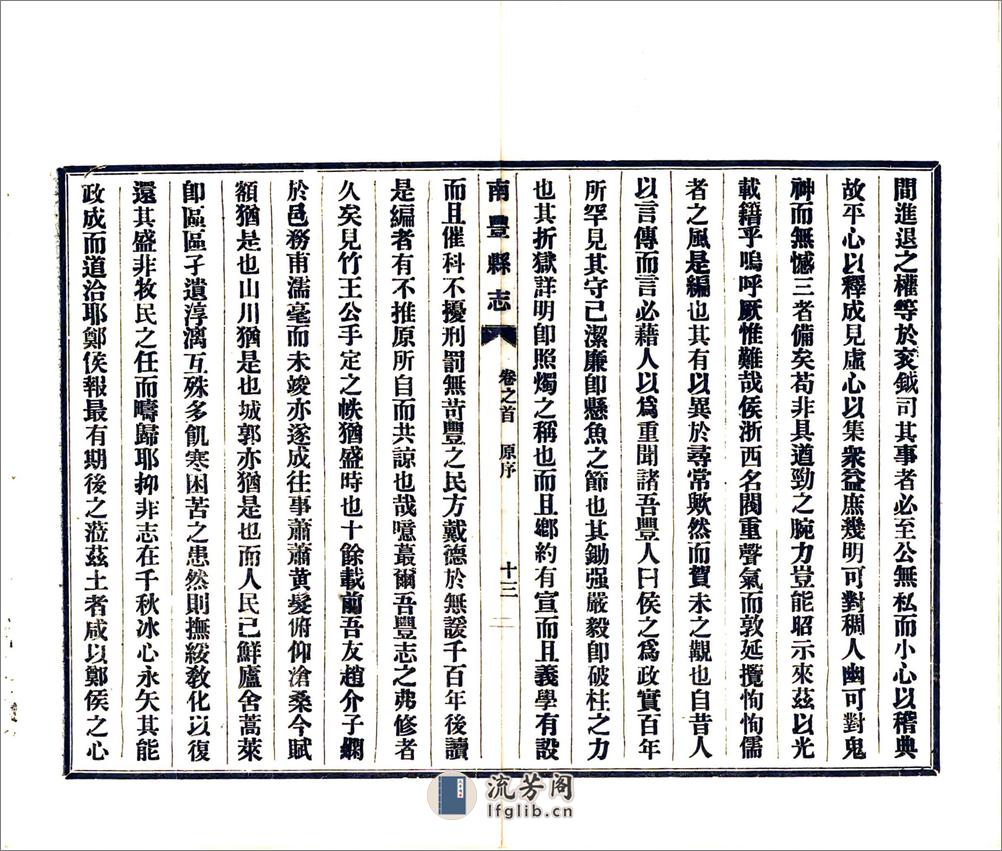 間進退之權等於衮鉞司其事者必至公無私而小心以稽典
故平心以釋成見虛心以集衆益庶幾明可對稠人幽可對鬼
神而無憾三者備矣苟非具遒勁之腕力豈能昭示來茲以光
載籍乎嗚呼厥惟難哉侯浙西名閥重聲氣而敦延攬恂恂儒
者之風是編也其有以異於尋常歟然而賀未之觀也自昔人
以言傳而言必藉人以爲重聞諸吾豐人曰侯之爲政實百年
所罕見其守己潔廉卽懸魚之節也其鋤强嚴毅卽破柱之力
也其折獄詳明卽照燭之稱也而且鄉約有宣而且義學有設
南豐縣志 卷之首 原序 十三
而且催科不擾刑罰無苛豐之民方戴德於無諼千百年後讀
是編者有不推原所自而共諒也哉噫蕞爾吾豐志之弗修者
久矣見竹王公手定之帙猶盛時也十餘載前吾友趙介子嫻
於邑務甫濡毫而未竣亦遂成往事蕭蕭黄髮俯仰滄桑今賦
額猶是也山川猶是也城郭亦猶是也而人民已鮮廬舍蒿萊
卽區區孑遺淳漓互殊多飢寒困苦之患然則撫綏敎化以復
還其盛非牧民之任而疇歸耶抑非志在千秋冰心永矢其能
政成而道洽耶鄭侯報最有期後之蒞茲土者咸以鄭侯之心
流芳阁
lfglib.cn